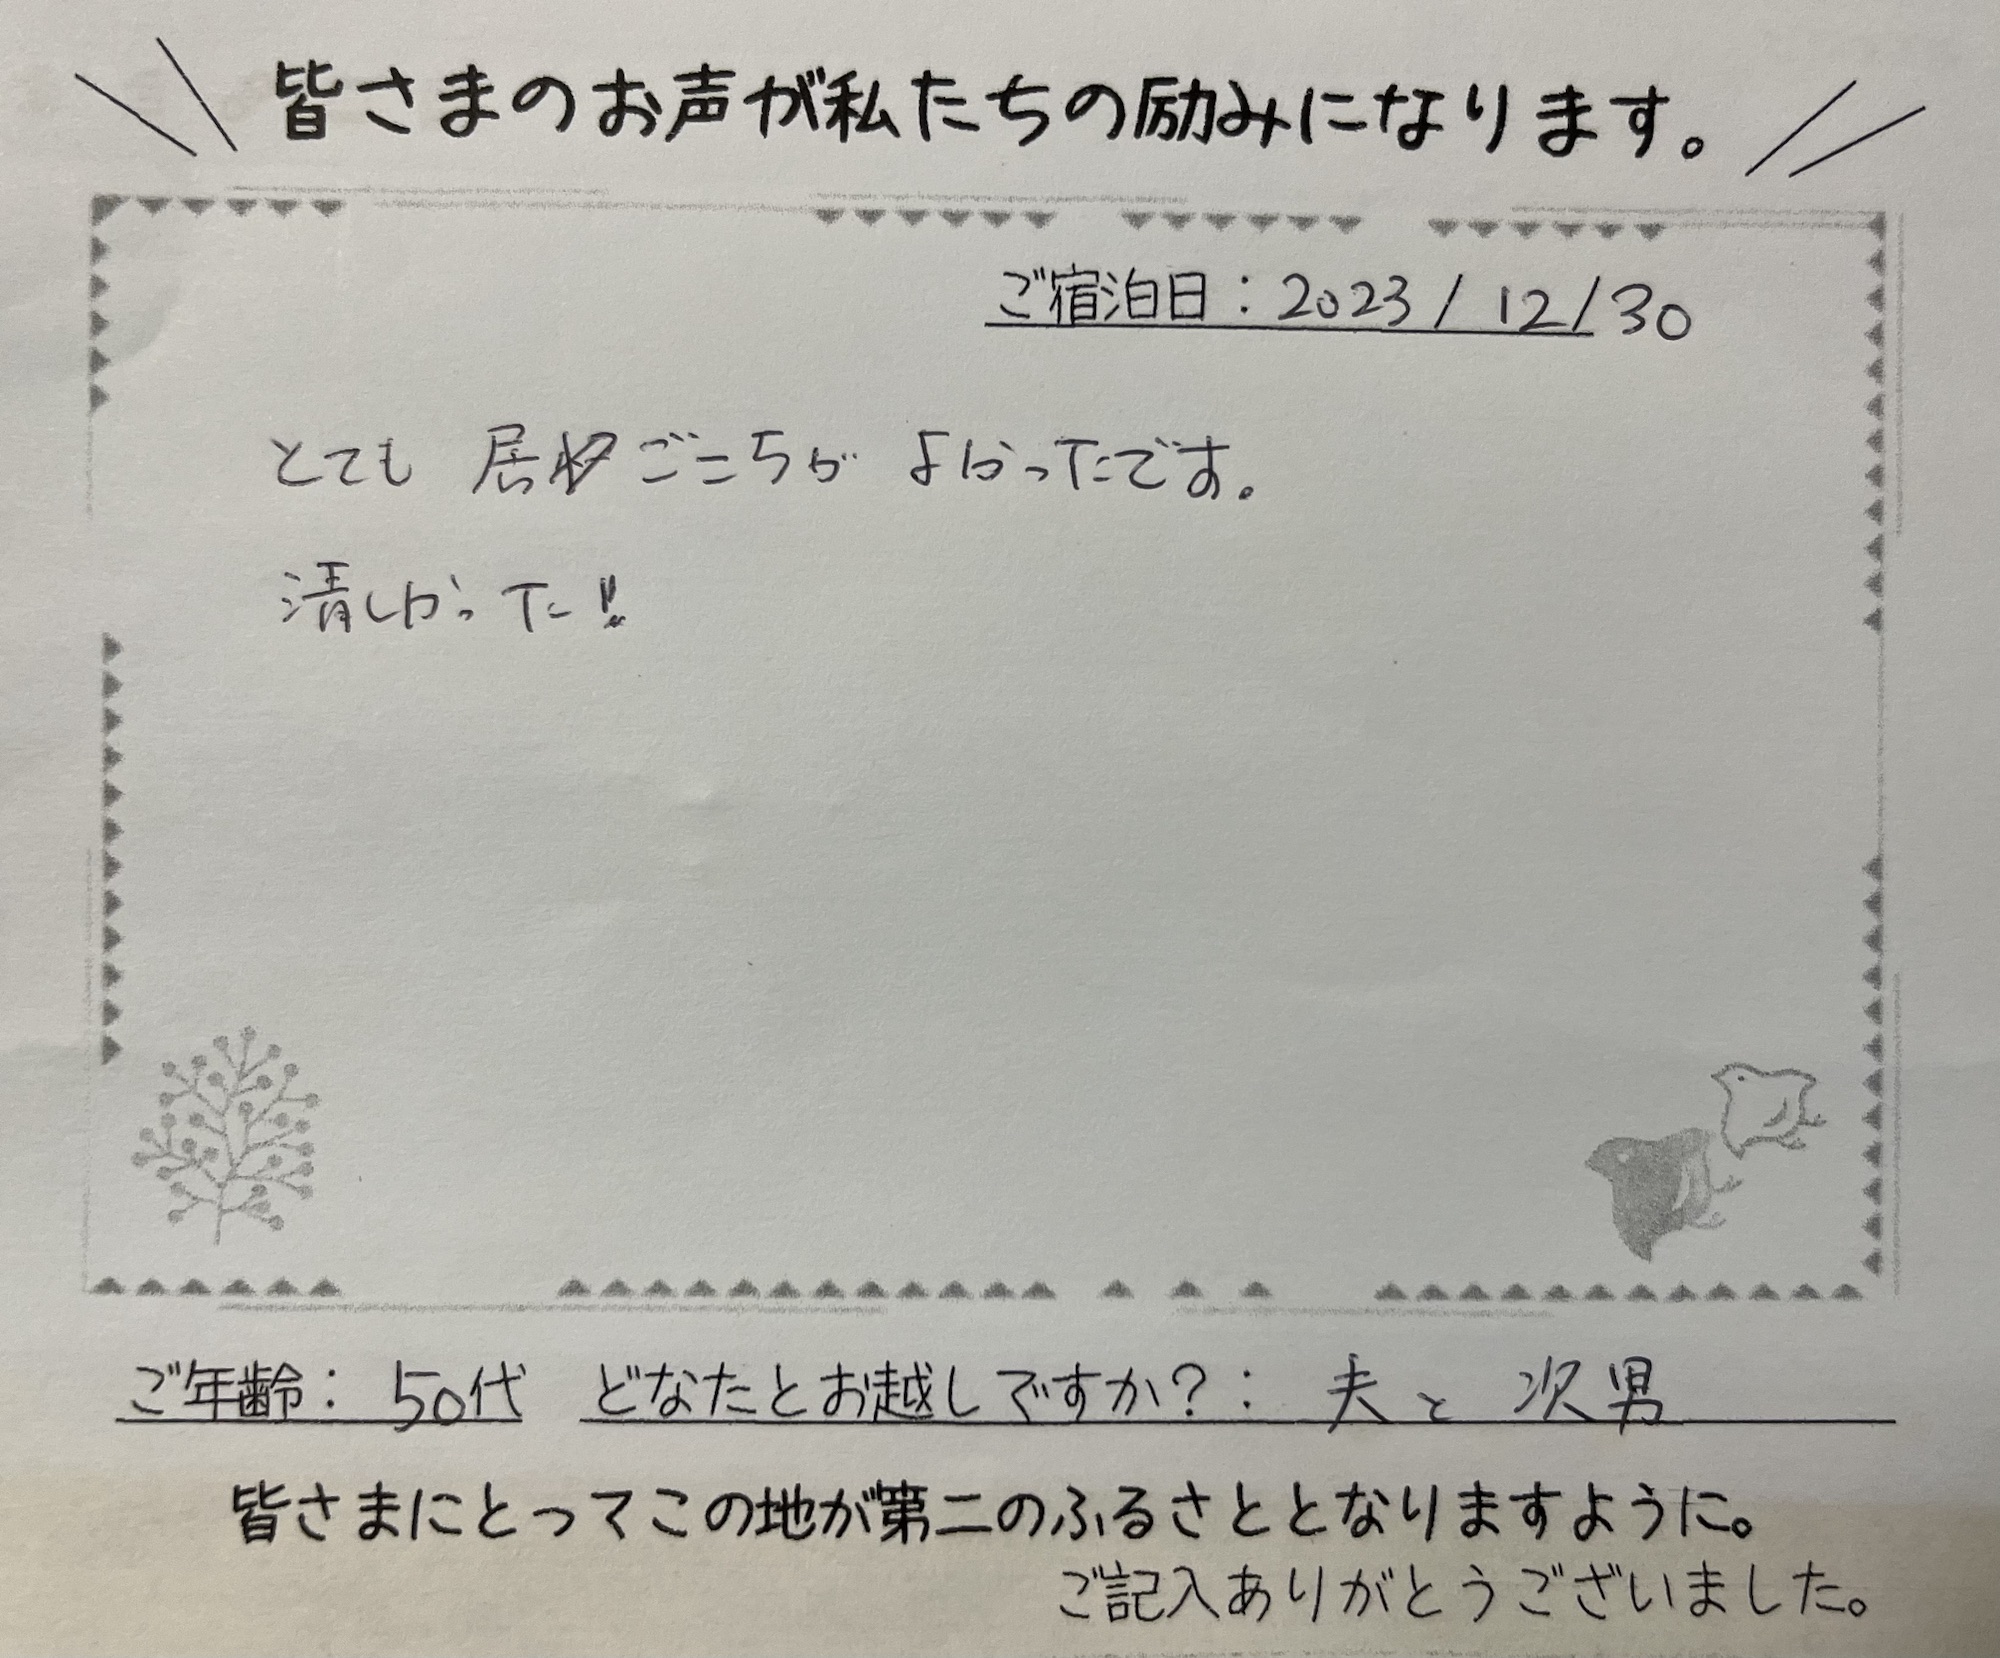 皆さまのお声が私たちの励みになります。
ご宿泊日：2023/12/30
とても 居ごこちが よかったです。
清しかった!!
ご年齢：50代 どなたとお越しですか？：夫と 次男
皆さまにとってこの地が第二のふるさととなりますように。
ご記入ありがとうございました。